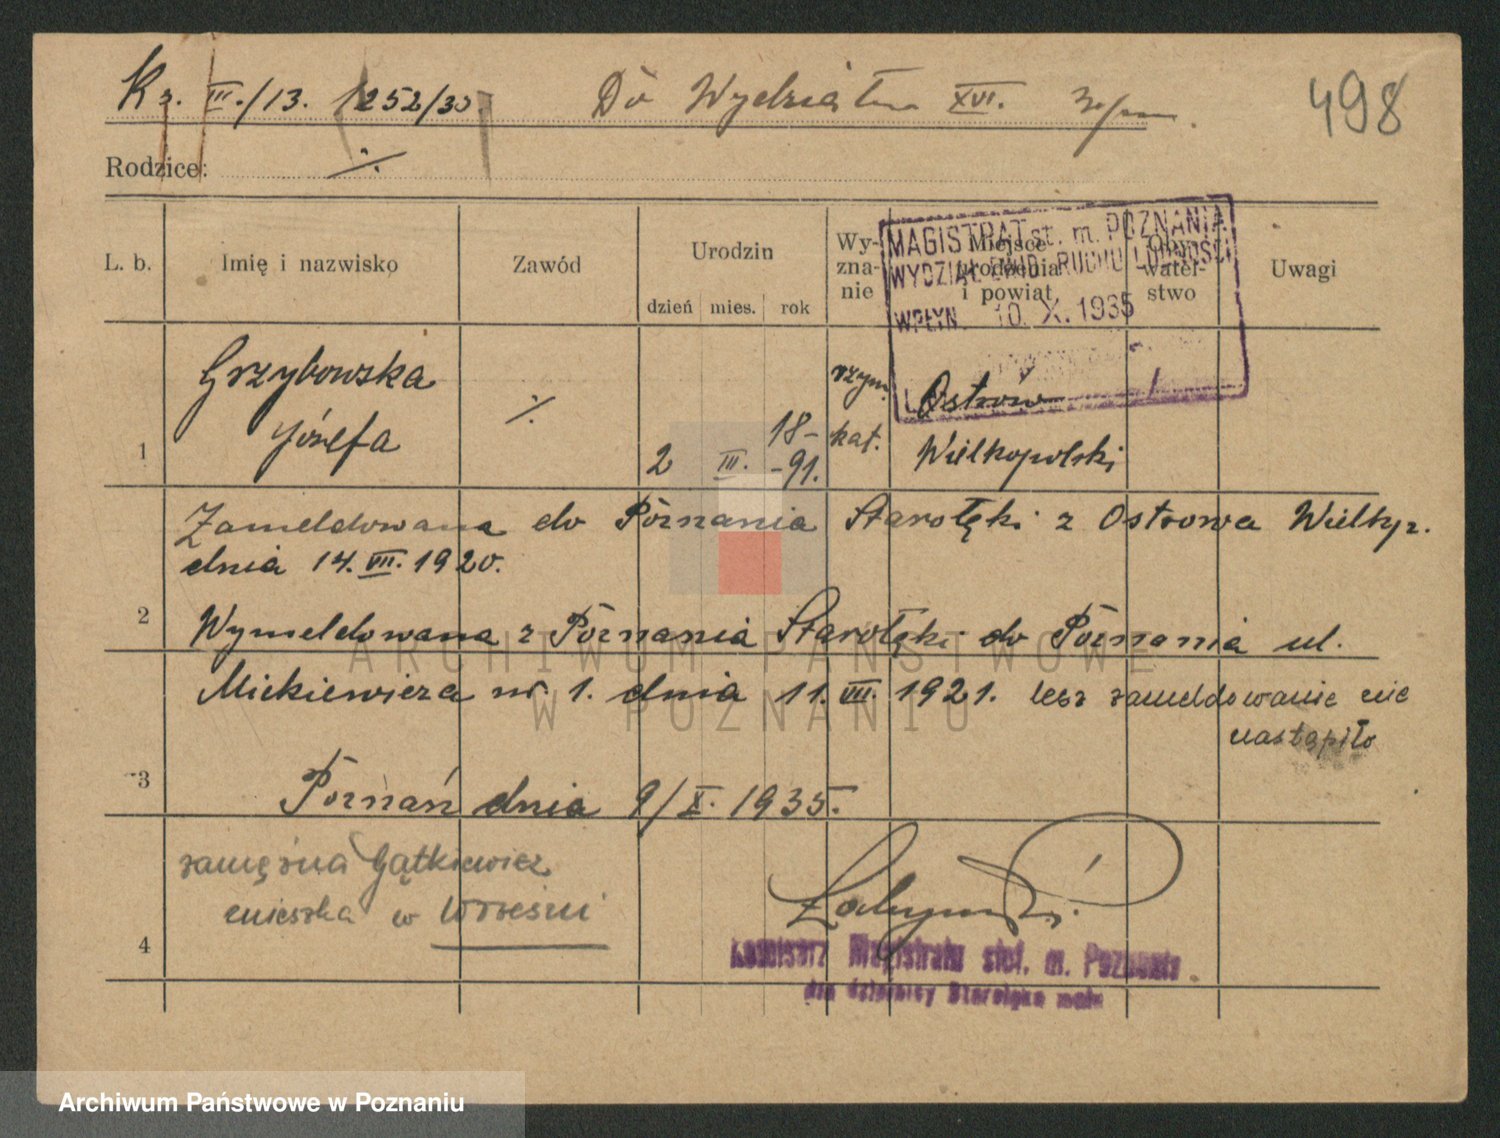 Kz. III./13. 252/35. Do Wydziału XVI.
498
Rodzice: ./.
L. b. Imię i nazwisko Zawód Urodzin dzień mies. rok Wy-zna-nie Miejsce urodzenia i powiat Oby-watel-stwo Uwagi
MAGISTRAT st. m. POZNANIA
WYDZIAŁ EWID. RUCHU LUDNOŚCI
WPŁYN. 10. X. 1935
1 Grzybowska ./. rzym. Ostrów
Józefa 2 III. 18-
-91. kat. Wielkopolski
Zameldowana do Poznania Starołęki z Ostrowa Wielkp.
dnia 14. VII. 1920.
2 Wymeldowana z Poznania Starołęki do Poznania ul.
Mickiewicza nr. 1. dnia 11. VII. 1921. lecz zameldowanie nie
nastąpiło
3 Poznań dnia 9/X. 1935.
zamężna Gątkiewicz
mieszka w Wrześni
4
Komisarz Magistratu stoł. m. Poznania
dla dzielnicy Starołęka mała
ARCHIWUM PAŃSTWOWE
W POZNANIU
Archiwum Państwowe w Poznaniu